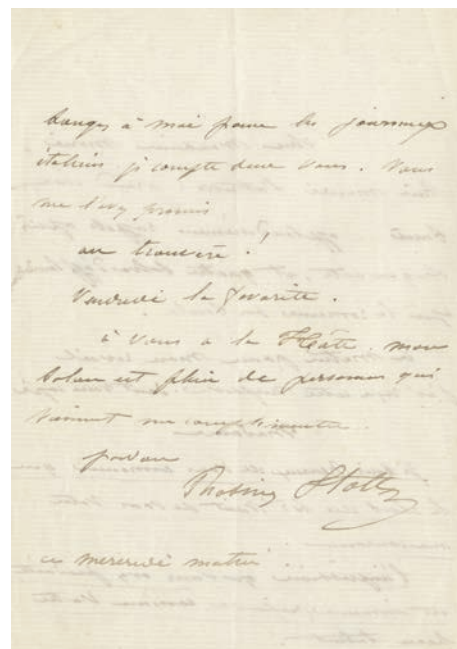 songez à moi pour les journaux
italiens je compte sur vous. Vous
me l'avez promis
au trouvère!
Vendredi la favorite.
à vous à la hâte. mon
salon est plein de personnes qui
viennent me complimenter.
pardon
Rosine Stoltz
ce mercredi matin